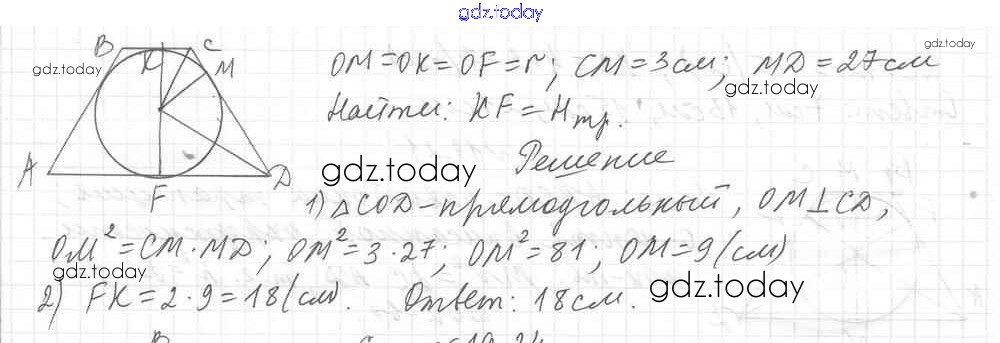 gdz.today
B K C M
gdz.today
OM=OK=OF=r; CM=3см; MD=27см
gdz.today
Найти: KF=Hтр.
A F D
gdz.today
Решение
1) △COD-прямоугольный, OM⊥CD,
OM²=CM·MD; OM²=3·27; OM²=81; OM=9(см)
gdz.today
2) FK=2·9=18(см). Ответ: 18см.
gdz.today